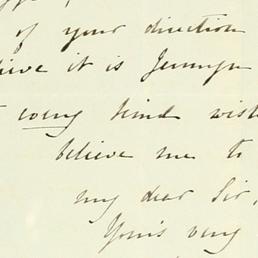 of your direction
ieve it is Jermyn
every kind wish
believe me to
my dear Sir,
Yours very